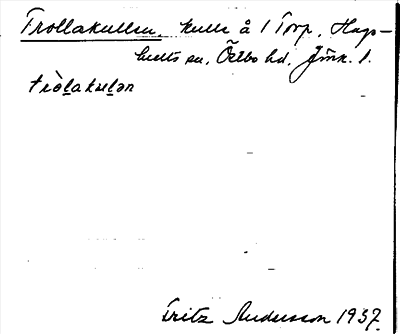 Trollakullen, kulle å 1 Torp, Hags-
hults sn, Östbo hd, Jönk. l.
tròl̯akul̯ən
Fritz Andersson 1937.